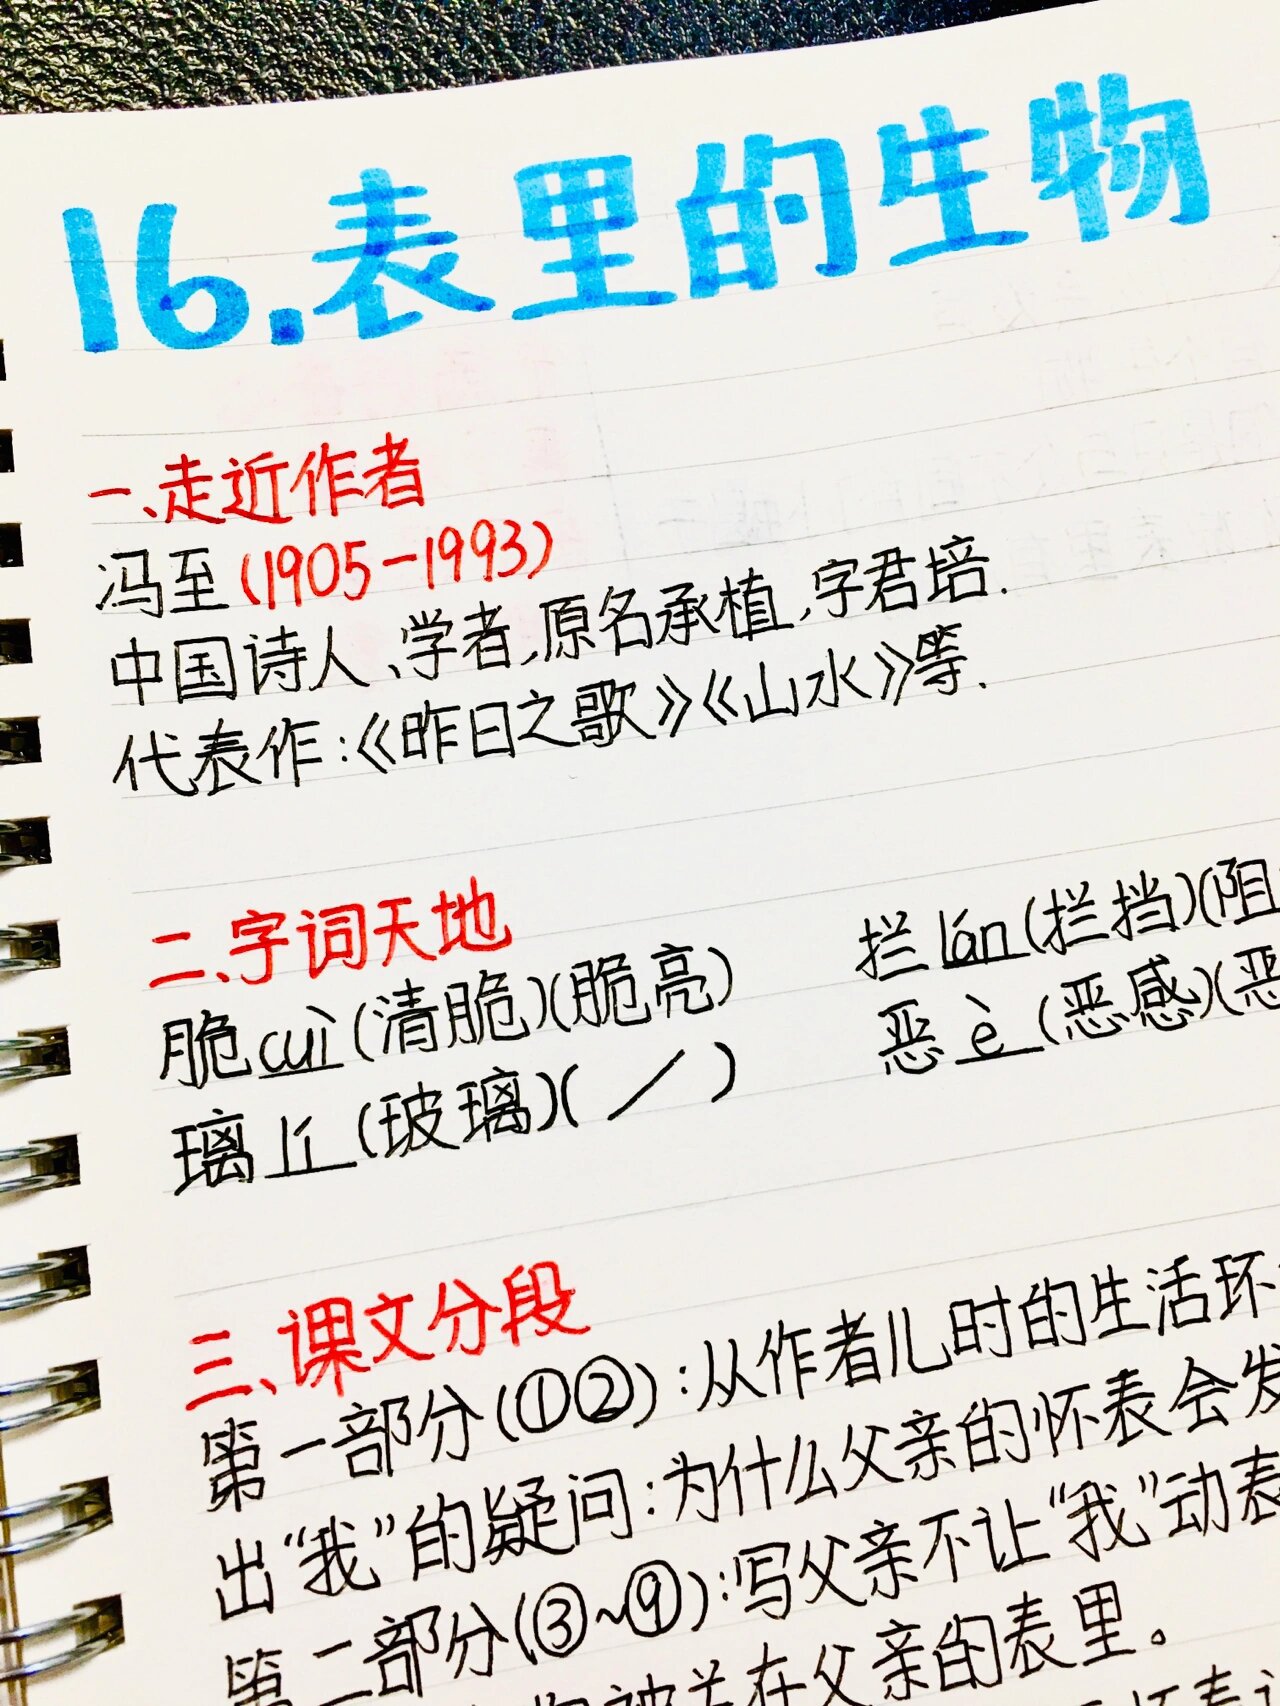 16.表里的生物
一、走近作者
冯至(1905-1993)
中国诗人、学者,原名承植,字君培.
代表作:《昨日之歌》《山水》等.
二、字词天地
脆cuì(清脆)(脆亮) 拦lán(拦挡)(阻
璃lí(玻璃)(／) 恶è(恶感)(恶
三、课文分段
第一部分(①②):从作者儿时的生活环
出“我”的疑问:为什么父亲的怀表会发
第二部分(③~⑨):写父亲不让“我”动表
被关在父亲的表里。